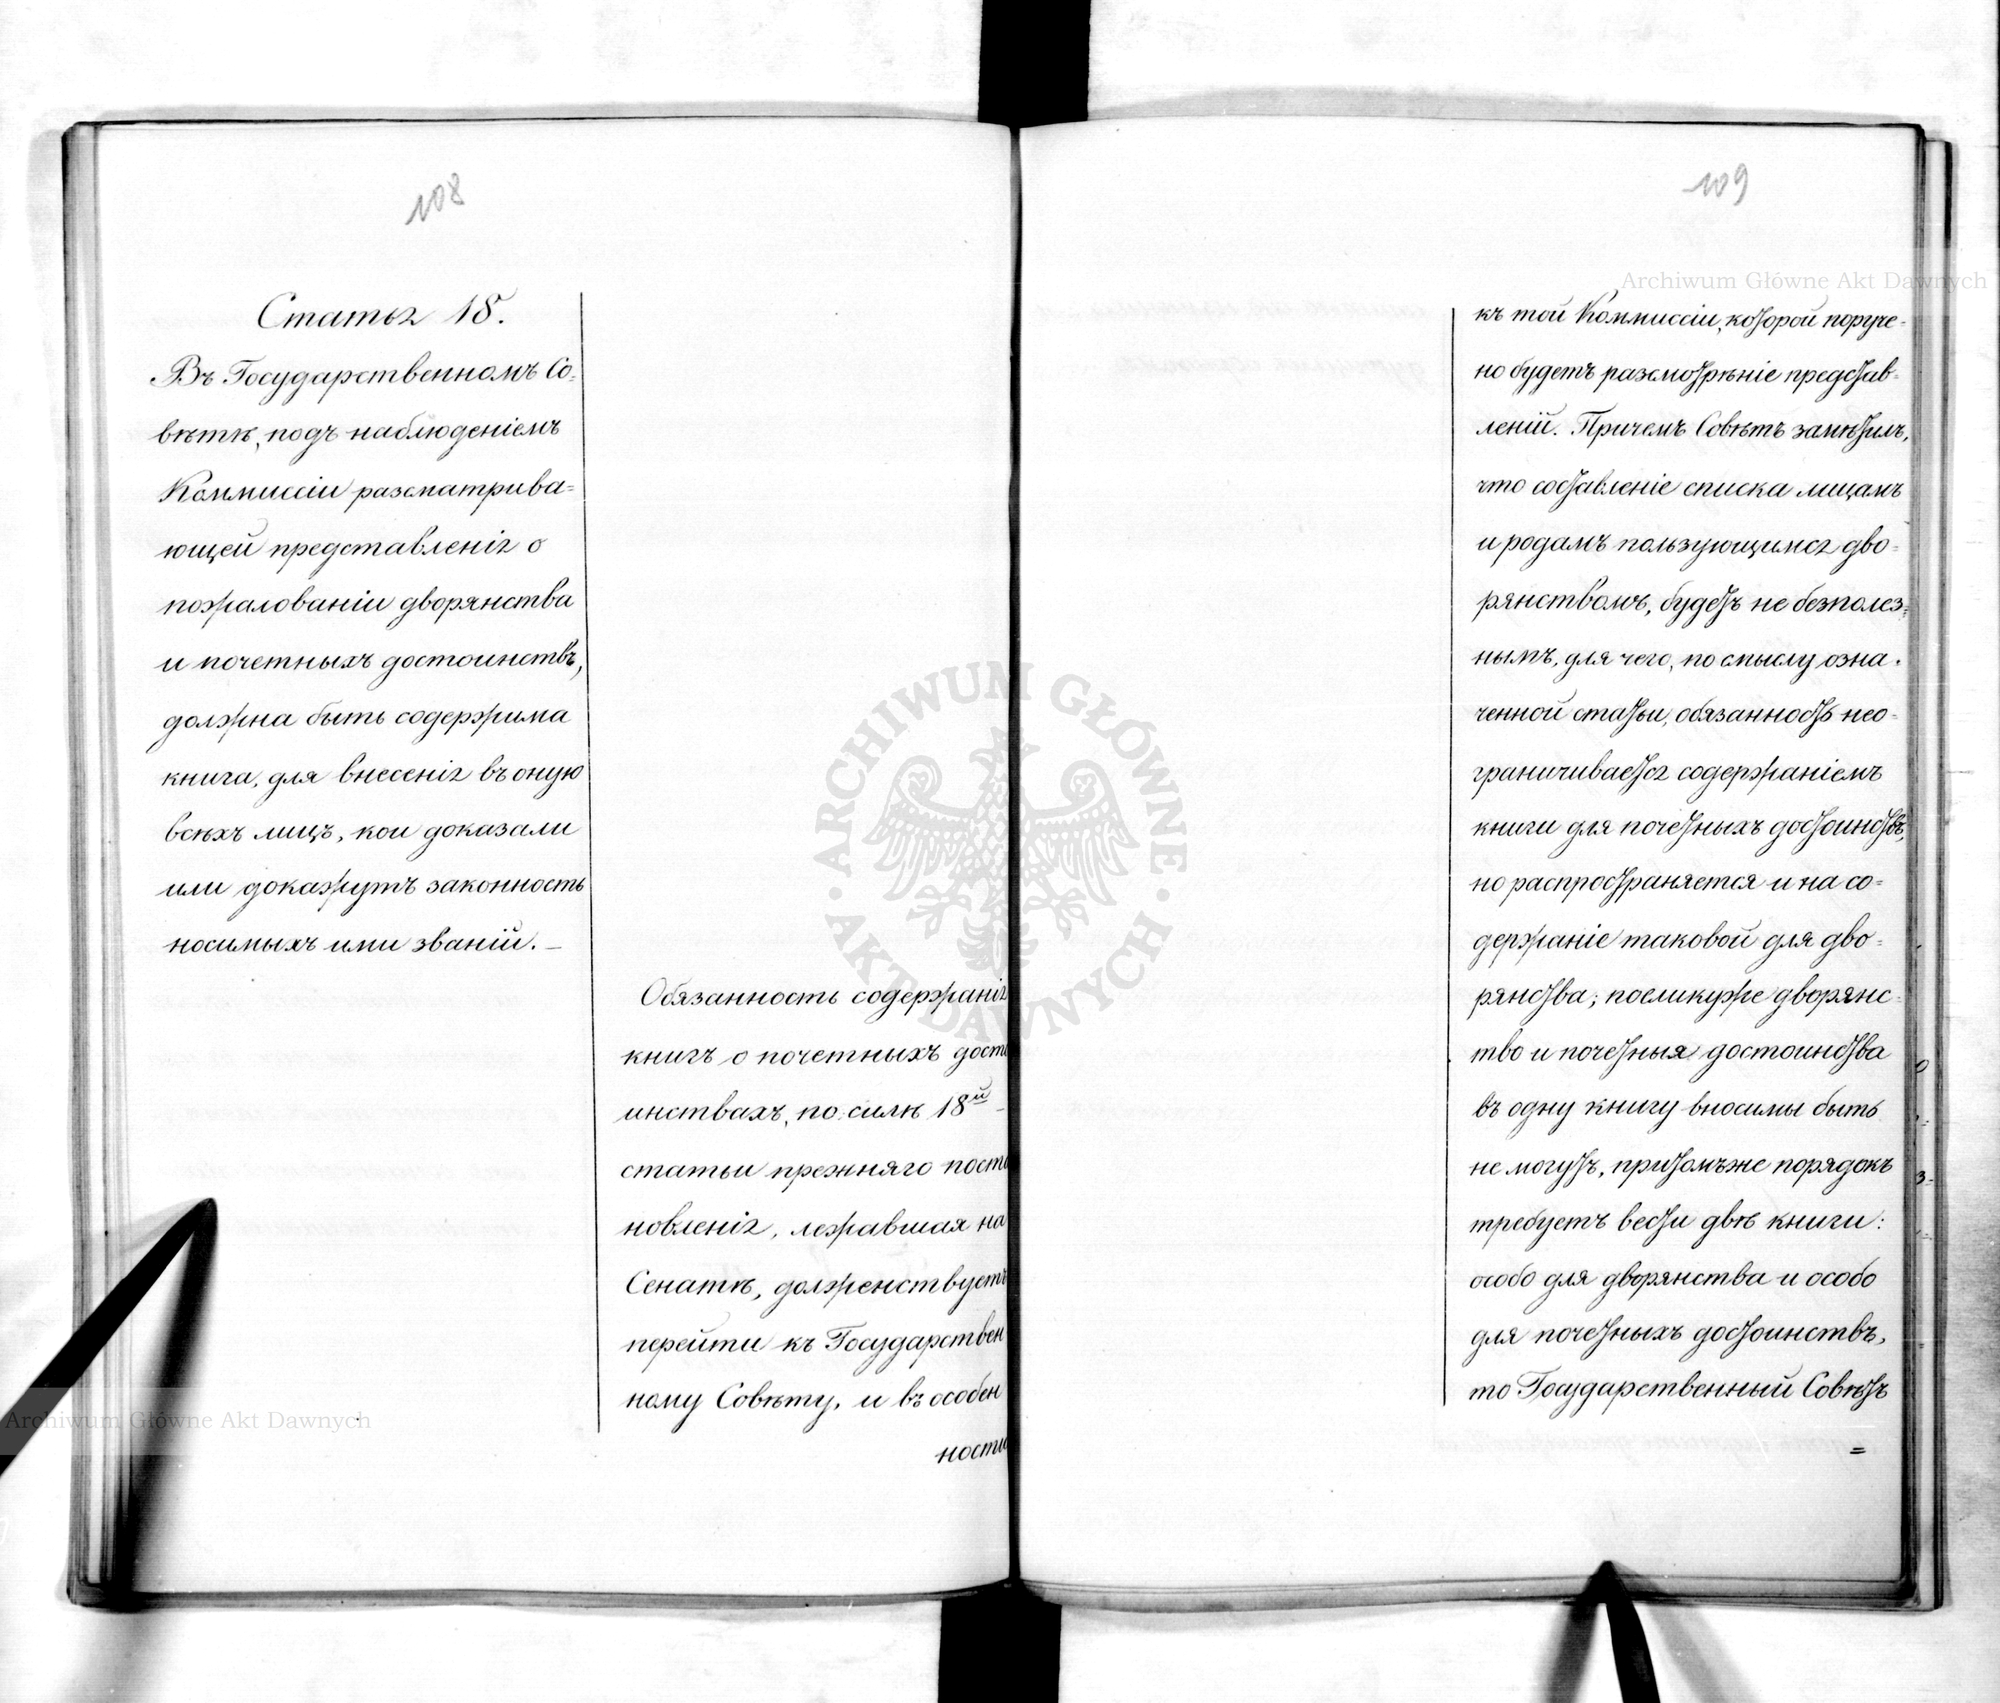 108
Статья 18.
Въ Государственномъ Со=
вѣтѣ, подъ наблюденіемъ
Коммиссіи разсматрива=
ющей представленія о
пожалованіи дворянства
и почетныхъ достоинствъ,
должна быть содержима
книга, для внесенія въ оную
всѣхъ лицъ, кои доказали
или докажутъ законность
носимыхъ ими званій. —
Обязанность содержанія
книгъ о почетныхъ досто
инствахъ, по силѣ 18й
статьи прежняго поста
новленія, лежавшая на
Сенатѣ, долженствуетъ
перейти къ Государствен
ному Совѣту, и въ особен
ности
109
къ той Коммиссіи, которой поруче=
но будетъ разсмотрѣніе представ=
леній. Причемъ Совѣтъ замѣтилъ,
что составленіе списка лицамъ
и родамъ пользующимся дво=
рянствомъ, будетъ не безполез=
нымъ, для чего, по смыслу озна=
ченной статьи, обязанность нео=
граничивается содержаніемъ
книги для почетныхъ достоинствъ,
но распространяется и на со=
держаніе таковой для дво=
рянства; поеликуже дворянс=
тво и почетныя достоинства
въ одну книгу вносимы быть
не могутъ, притомъже порядокъ
требуетъ вести двѣ книги:
особо для дворянства и особо
для почетныхъ достоинствъ,
то Государственный Совѣтъ
=
Archiwum Główne Akt Dawnych
Archiwum Główne Akt Dawnych
ARCHIWUM GŁÓWNE · AKT DAWNYCH ·